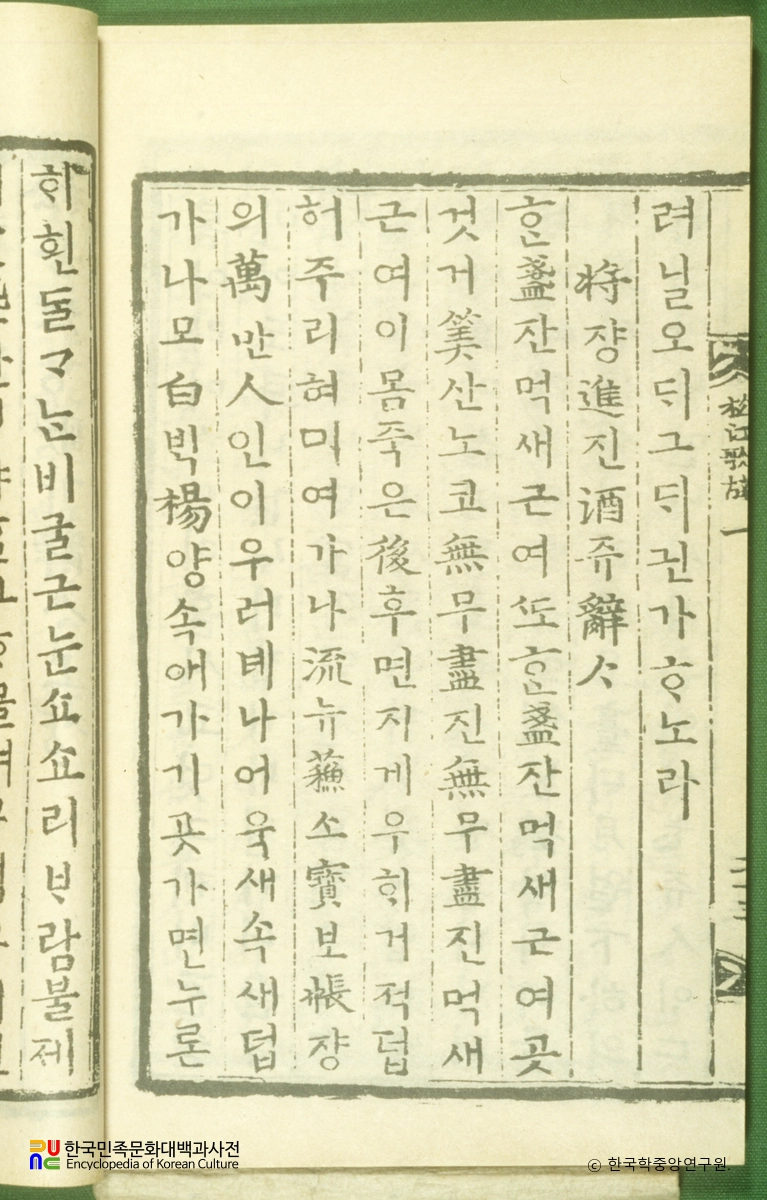 려닐오ᄃᆡ그ᄃᆡ긘가ᄒᆞ노라
將쟝進진酒쥬辭ᄉᆞ
ᄒᆞᆫ盞잔먹새근여ᄯᅩᄒᆞᆫ盞잔먹새근여곳
것거筭산노코無무盡진無무盡진먹새
근여이몸죽은後후면지게우ᄒᆡ거적덥
허주리혀ᄆᆡ여가나流뉴蘓소寶보帳쟝
의萬만人인이우러녜나어욱새속새덥
가나모白ᄇᆡᆨ楊양속애가기곳가면누론
ᄒᆡ흰ᄃᆞᆯᄀᆞᄂᆞᆫ비굴근눈쇼쇼리ᄇᆞ람불제
松江歌辭
한국민족문화대백과사전
Encyclopedia of Korean Culture
© 한국학중앙연구원.